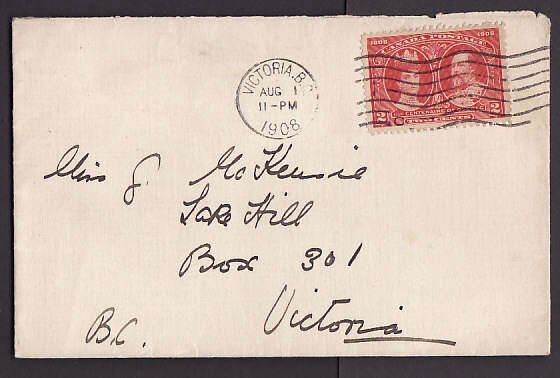 VICTORIA, B.C.
AUG 1
11-PM
1908
1608 CANADA POSTAGE 1908
2 TWO CENTS 2
Miss J. McKensie
Lake Hill
Box 301
Victoria
B.C.